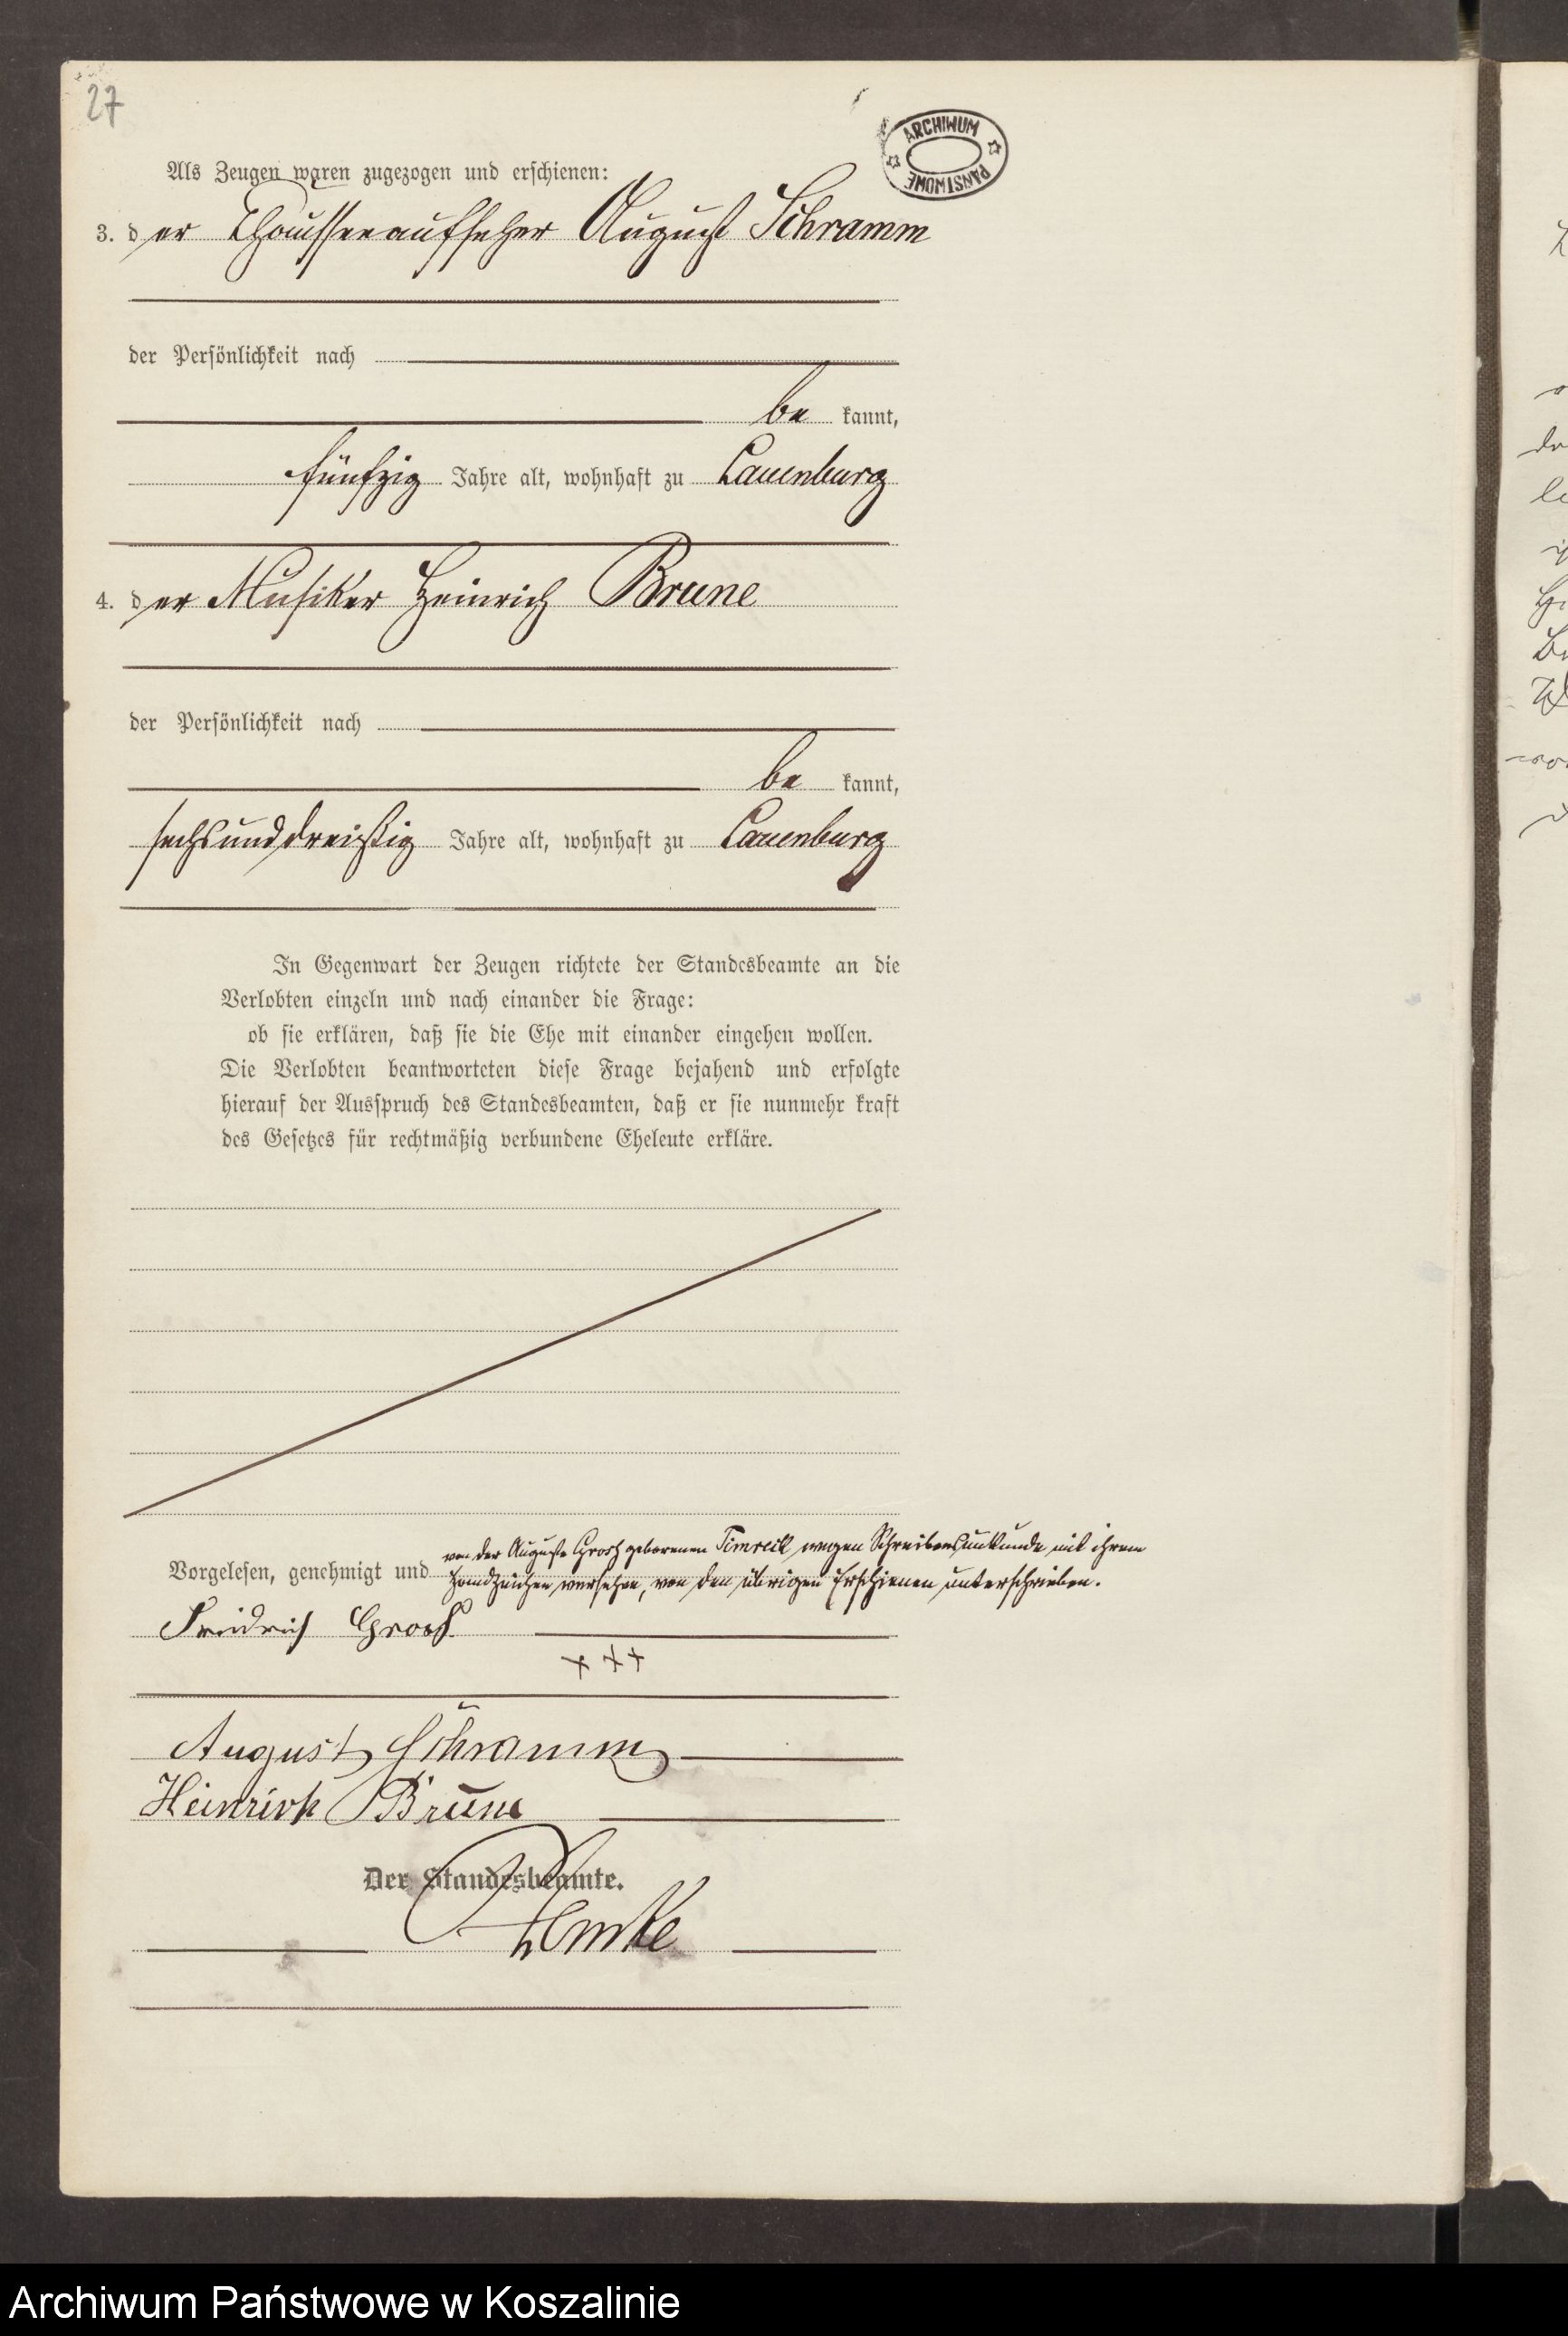 27
ARCHIWUM PAŃSTWOWE
Als Zeugen waren zugezogen und erschienen:
3. der Chausseeaufseher August Schramm
der Persönlichkeit nach
be kannt,
fünfzig Jahre alt, wohnhaft zu Lauenburg
4. der Musiker Heinrich Brune
der Persönlichkeit nach
be kannt,
sechsunddreißig Jahre alt, wohnhaft zu Lauenburg
In Gegenwart der Zeugen richtete der Standesbeamte an die
Verlobten einzeln und nach einander die Frage:
ob sie erklären, daß sie die Ehe mit einander eingehen wollen.
Die Verlobten beantworteten diese Frage bejahend und erfolgte
hierauf der Ausspruch des Standesbeamten, daß er sie nunmehr kraft
des Gesetzes für rechtmäßig verbundene Eheleute erkläre.
von der Auguste Grosz geborenen wegen Schreibensunkunde mit ihrem
Vorgelesen, genehmigt und Handzeichen versehen, von den übrigen Erschienen unterschrieben.
Friedrich
+++
August Schramm
Heinrich Brune
Der Standesbeamte.
Archiwum Państwowe w Koszalinie